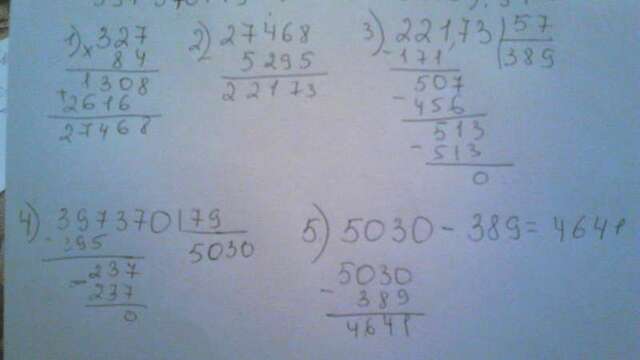 1) × 327
84
1308
+ 2616
27468
2) 27468
5295
22173
3) 22173 | 57
- 171 | 389
507
- 456
513
- 513
0
4) 397370 | 79
- 395 | 5030
- 237
237
0
5) 5030 - 389 = 4641
- 5030
389
4641